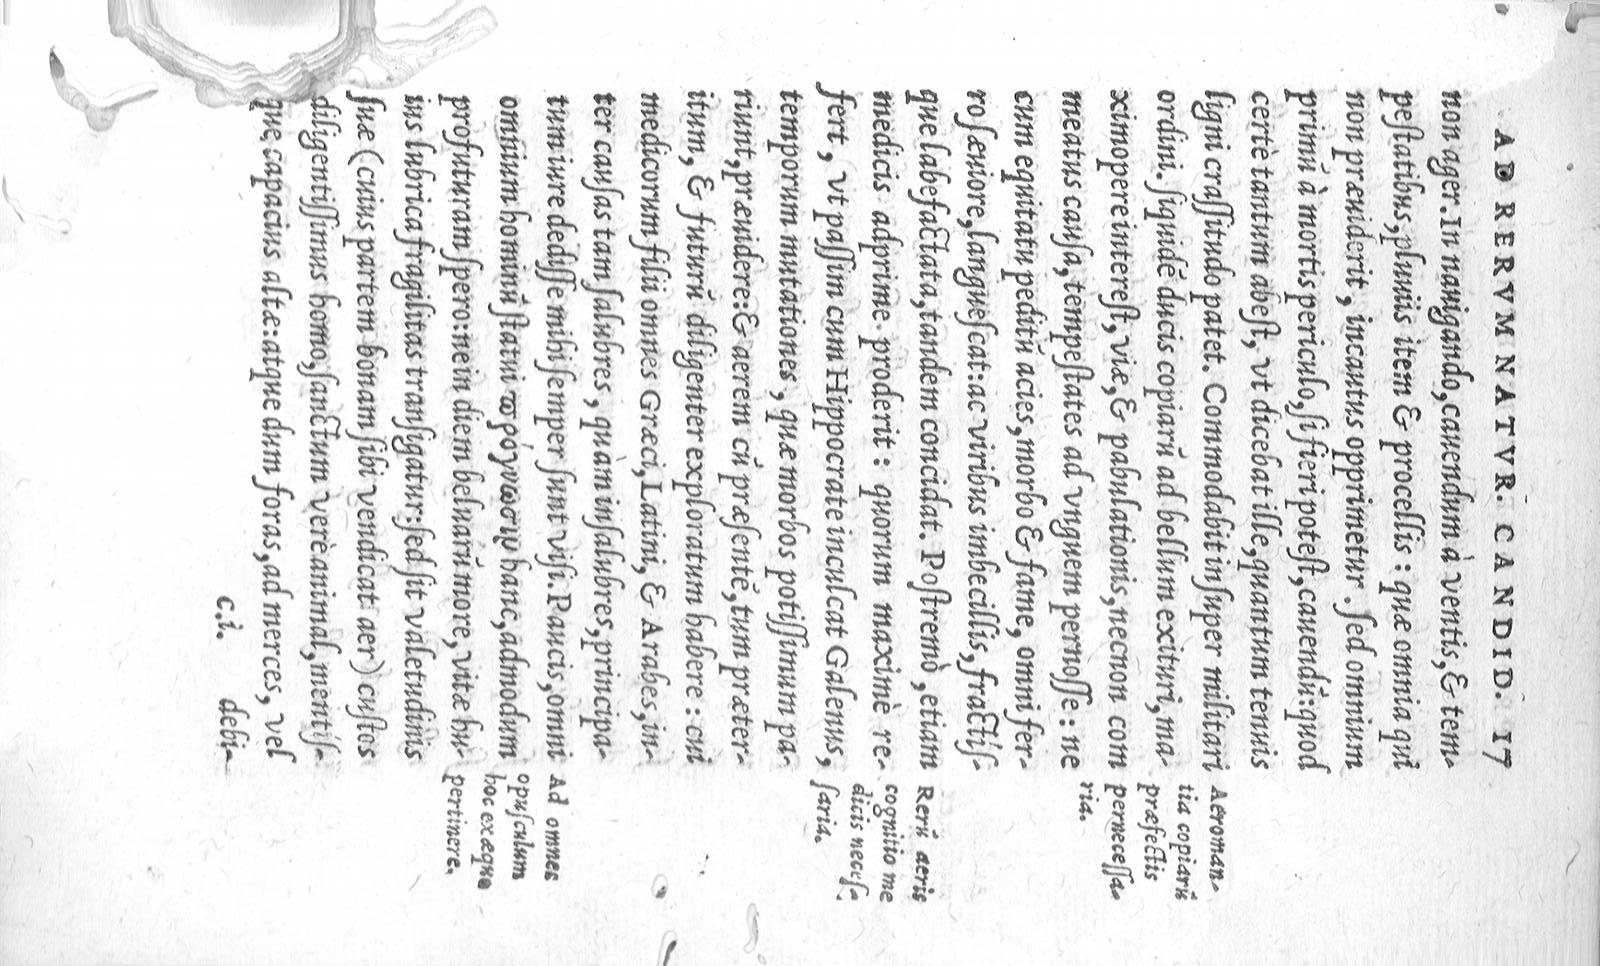 AD RERVM NATVR. CANDID. 17
non ager. In nauigando, cauendum à ventis, & tem-
peſtatibus, pluuiis item & procellis: quæ omnia qui
non præuiderit, incautus opprimetur. ſed omnium
primũ à mortis periculo, ſi fieri poteſt, cauendũ: quod
certè tantum abeſt, vt dicebat ille, quantum tenuis
ligni craſſitudo patet. Commodabit inſuper militari
ordini. ſiquidẽ ducis copiarũ ad bellum exituri, ma-
ximopere intereſt, viæ, & pabulationis, necnon com
meatus cauſa, tempeſtates ad vnguem pernoſſe: ne
cum equitatu peditũ acies, morbo & fame, omni fer-
ro ſæuiore, langueſcat: ac viribus imbecillis, fractiſ-
que labefactata, tandem concidat. Poſtremò, etiam
medicis adprime proderit: quorum maximè re-
fert, vt paſſim cum Hippocrate inculcat Galenus,
temporum mutationes, quæ morbos potiſſimum pa-
riunt, præuidere: & aerem cũ præſentẽ, tum præter-
itum, & futurũ diligenter exploratum habere: cui
medicorum filii omnes Græci, Latini, & Arabes, in-
ter cauſas tam ſalubres, quàm inſalubres, principa-
tum iure dediſſe mihi ſemper ſunt viſi. Paucis, omni
omnium hominũ ſtatui πρόγνωσιν hanc, admodum
profuturam ſpero: ne in diem beluarũ more, vitæ hu
ius lubrica fragilitas tranſigatur: ſed ſit valetudinis
ſuæ (cuius partem bonam ſibi vendicat aer) cuſtos
diligentiſſimus homo, ſanctum verè animal, mentiſ-
que, capacius altæ. atque dum foras, ad merces, vel
c.i. debi-
Aeroman-
tia copiarũ
præfectis
perneceſſa-
ria.
Rerũ aeris
cognitio me
dicis neceſ-
ſaria.
Ad omnes
opuſculum
hoc ex æquo
pertinere.